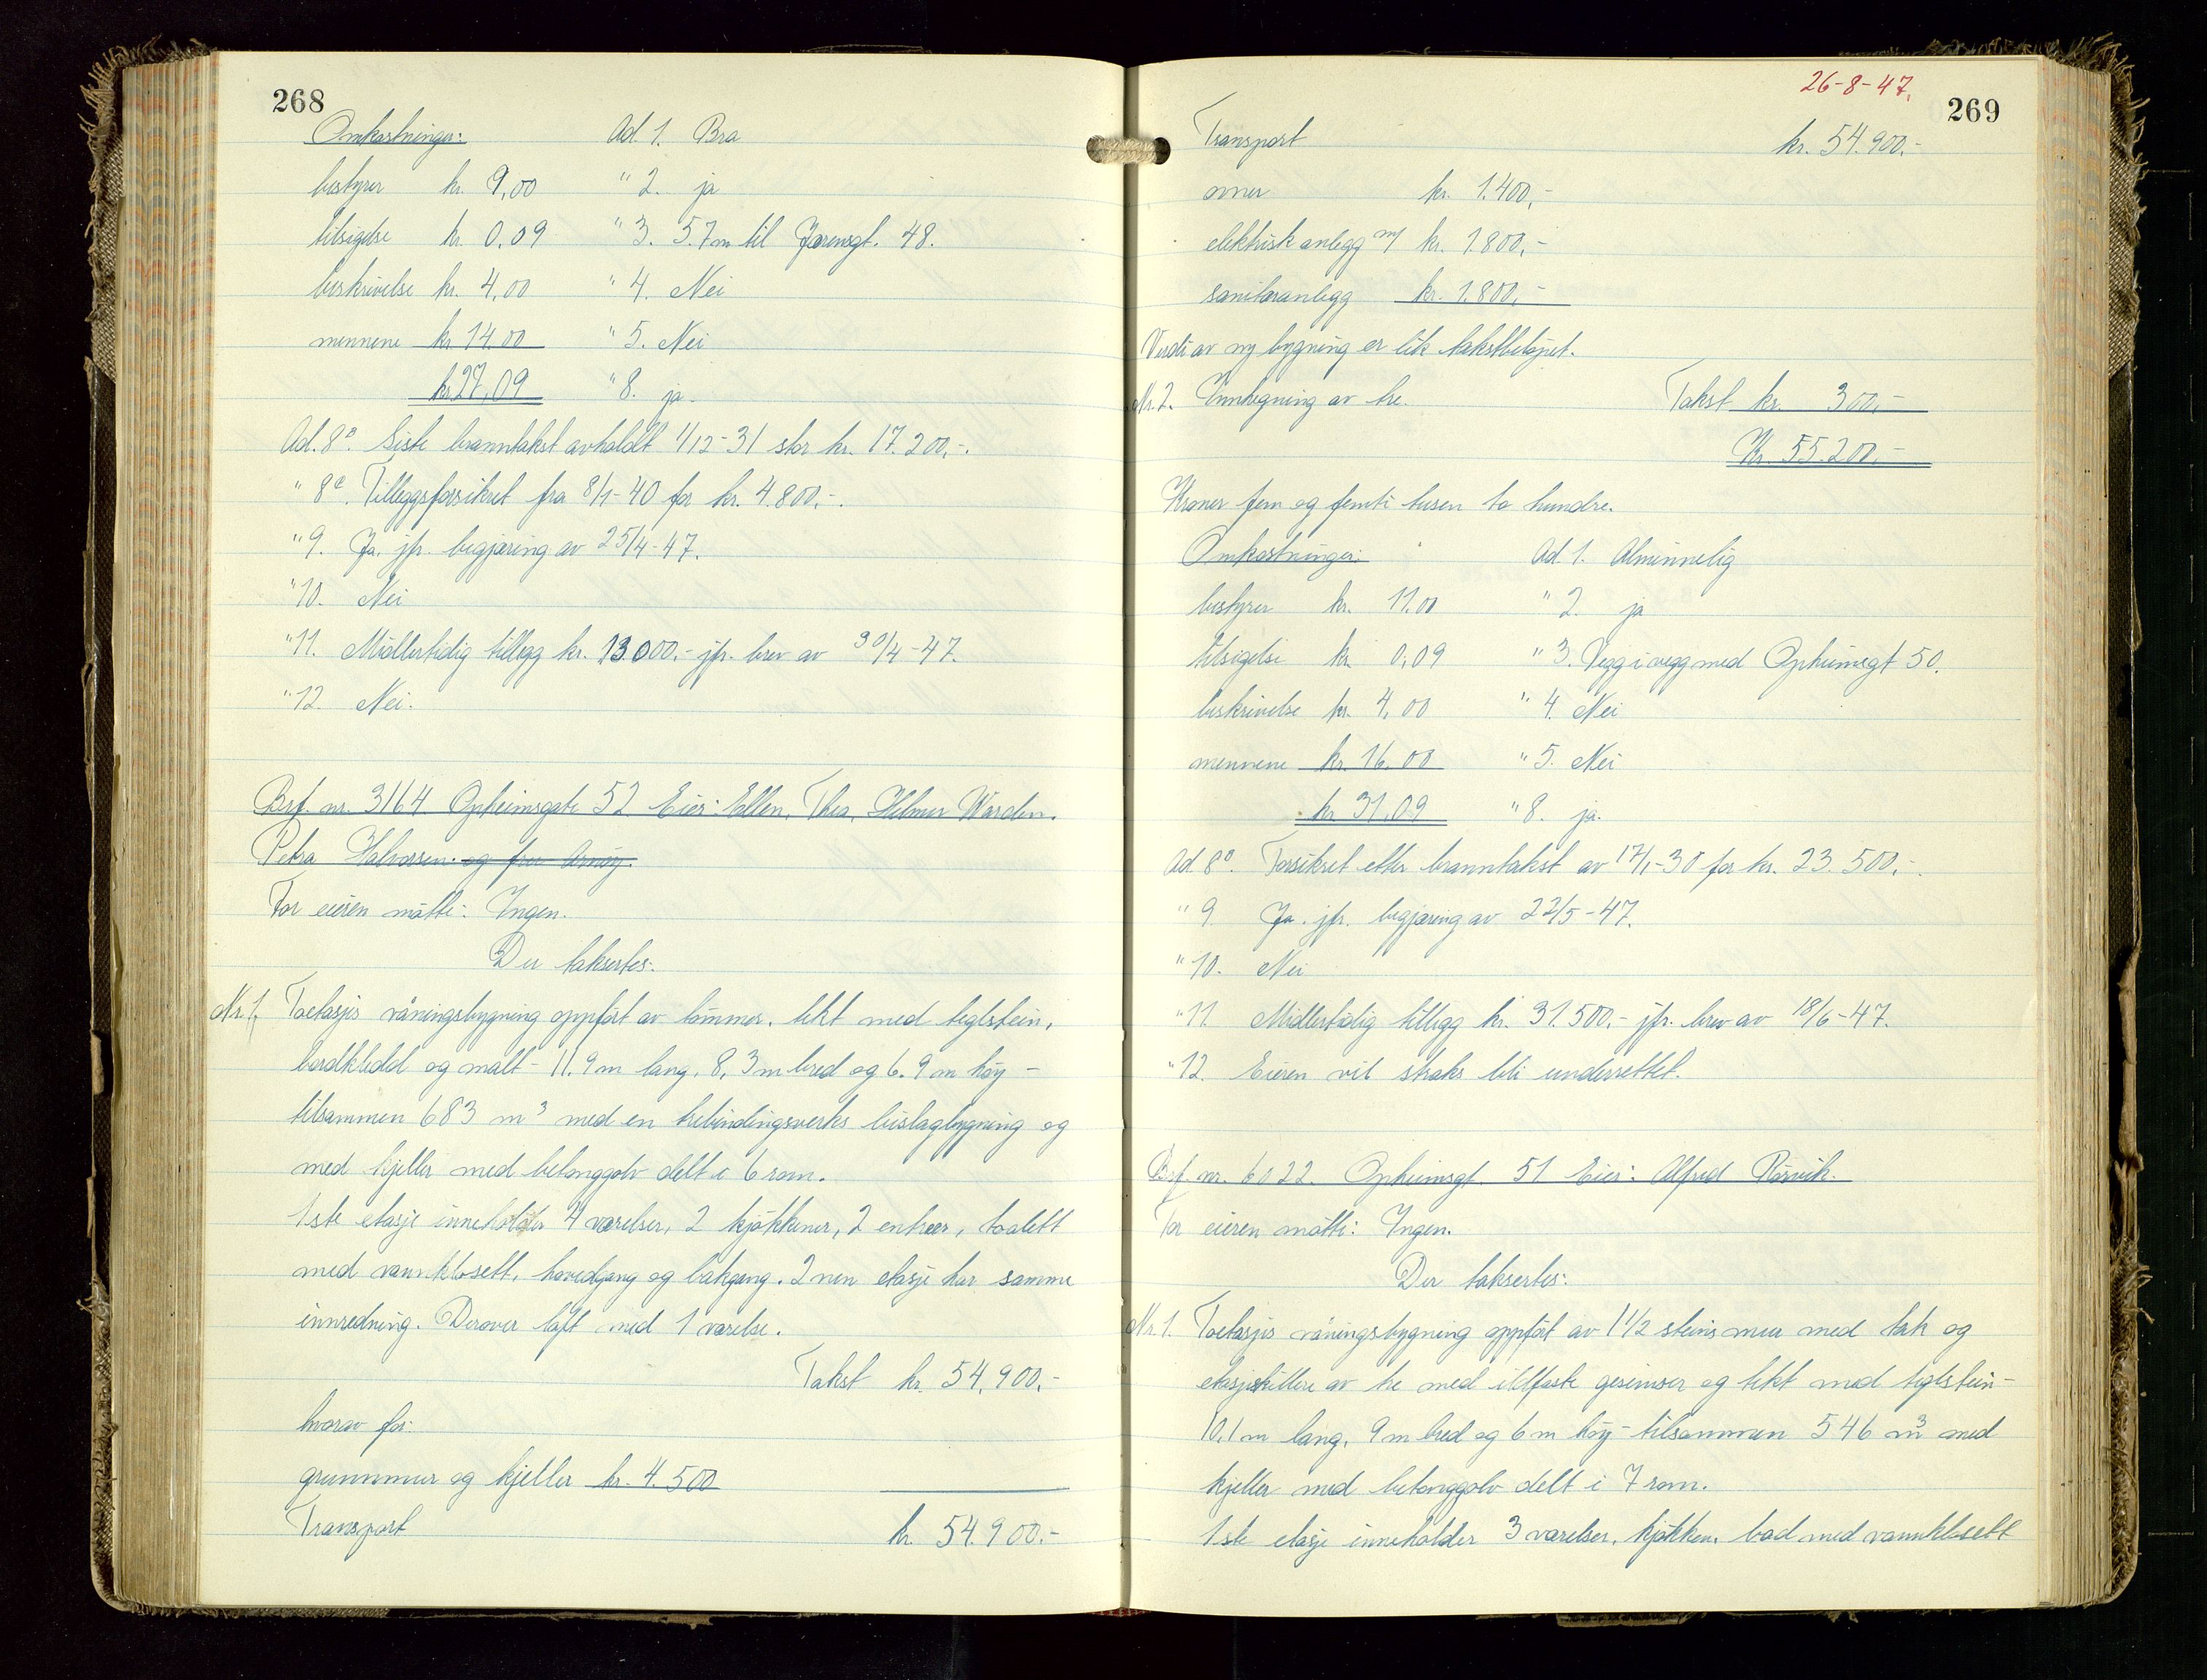 268
Omkostninger: Ad 1. Bra
bestyrer kr. 9,00 " 2. ja
tilsigelse kr. 0,09 " 3. 5.7m til Jærensgt. 48.
beskrivelse kr. 4,00 " 4. Nei
mennene kr. 14.00 " 5. Nei
kr. 27,09 " 8. ja.
Ad. 8ᴮ. Siste branntakst avholdt 1/12-31 stor kr. 17.200,-.
" 8ᶜ. Tilleggsforsikret fra 8/1-40 for kr. 4.800,-.
" 9. Ja. jfr. begjæring av 25/4-47.
" 10. Nei
" 11. Midlertidig tillegg kr. 13.000.- jfr. brev av 30/4-47.
" 12. Nei.
Brf. nr. 3164 Opheimsgate 52 Eier: Ellen, Thea, Helmer Warden.
Petra Halvorsen. og fru Arnøy.
For eieren møtte: Ingen.
Der taksertes:
Nr. 1. Toetasjes våningsbygning oppført av tømmer, tekt med teglstein,
bordkledd og malt - 11.9m lang, 8,3m bred og 6.9m høy -
tilsammen 683 m³ med en trebindingsverks bislagbygning og
med kjeller med betonggolv delt i 6 rom.
1ste etasje inneholder 4 værelser, 2 kjøkkener, 2 entreer, toalett
med vannklosett, hovedgang og bakgang. 2nen etasje har samme
innredning. Derover loft med 1 værelse.
Takst kr. 54.900.-
hvorav for:
grunnmur og kjeller kr. 4.500
Transport kr. 54.900.-
26-8-47.
269
Transport kr. 54.900.-
ovner kr. 1.400,-
elektrisk anlegg m/ kr. 1.800,-
sanitæranlegg kr. 1.800,-
Verdi av ny bygning er lik takstbeløpet.
Nr. 2. Innhegning av tre. Takst kr. 300,-
Kr. 55.200,-
Kroner fem og femti tusen to hundre.
Omkostninger: Ad 1. Alminnelig
bestyrer kr. 11.00 " 2. ja
tilsigelse kr. 0,09 " 3. Vegg i vegg med Opheimsgt 50.
beskrivelse kr. 4,00 " 4. Nei
mennene kr. 16.00 " 5. Nei
kr. 31,09 " 8. ja.
Ad. 8ᴮ. Forsikret etter branntakst av 17/1-30 for kr. 23.500,-.
" 9. Ja. jfr. begjæring av 22/5-47.
" 10. Nei
" 11. Midlertidig tillegg kr. 31.500.- jfr. brev av 18/6-47.
" 12. Eieren vil straks bli underrettet.
Brf. nr. 6022. Opheimsgt. 51 Eier: Alfred Rørvik.
For eieren møtte: Ingen.
Der taksertes:
Nr. 1. Toetasjes våningsbygning oppført av 1 1/2 steins mur med tak og
etasjeskillere av tre med ildfaste gesimser og tekt med teglstein -
10,1m lang, 9m bred og 6m høy - tilsammen 546 m³ med
kjeller med betonggolv delt i 7 rom.
1ste etasje inneholder 3 værelser, kjøkken, bad med vannklosett